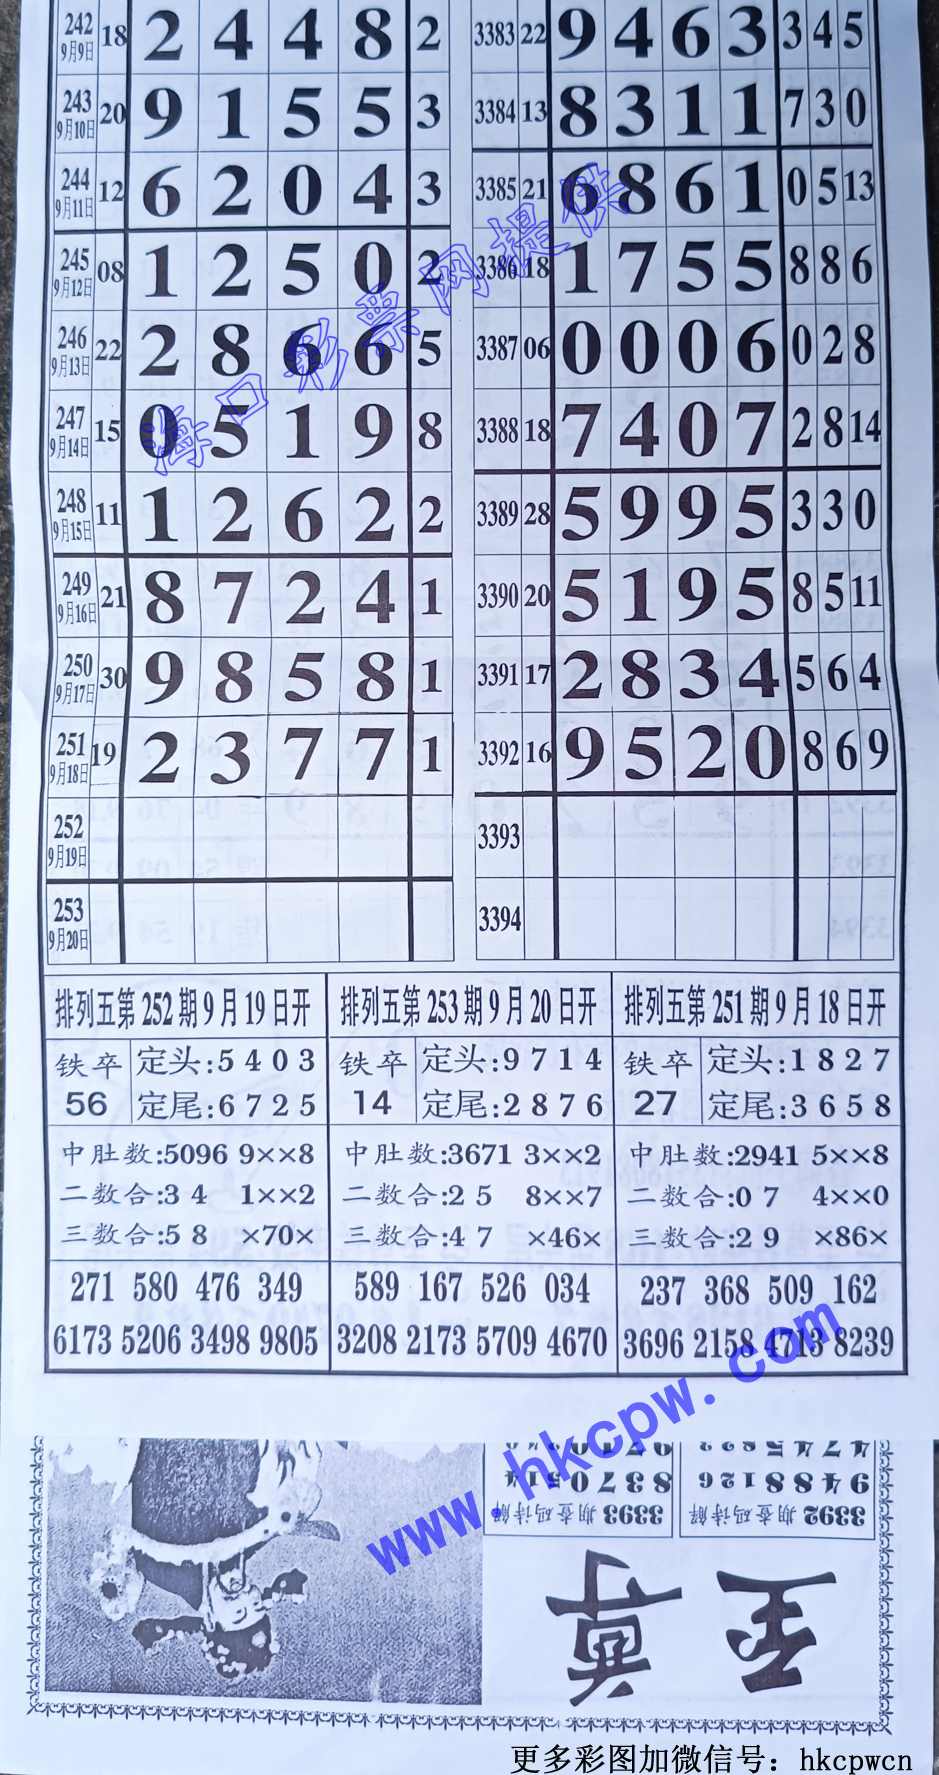 242 9月9日 18 2 4 4 8 2 3383 22 9 4 6 3 3 4 5
243 9月10日 20 9 1 5 5 3 3384 13 8 3 1 1 7 3 0
244 9月11日 12 6 2 0 4 3 3385 21 6 8 6 1 0 5 13
245 9月12日 08 1 2 5 0 2 3386 18 1 7 5 5 8 8 6
246 9月13日 22 2 8 6 6 5 3387 06 0 0 0 6 0 2 8
247 9月14日 15 0 5 1 9 8 3388 18 7 4 0 7 2 8 14
248 9月15日 11 1 2 6 2 2 3389 28 5 9 9 5 3 3 0
249 9月16日 21 8 7 2 4 1 3390 20 5 1 9 5 8 5 11
250 9月17日 30 9 8 5 8 1 3391 17 2 8 3 4 5 6 4
251 9月18日 19 2 3 7 7 1 3392 16 9 5 2 0 8 6 9
252 9月19日 3393
253 9月20日 3394
海口彩票网提供
排列五第252期9月19日开 排列五第253期9月20日开 排列五第251期9月18日开
铁卒 定头:5403 铁卒 定头:9714 铁卒 定头:1827
56 定尾:6725 14 定尾:2876 27 定尾:3658
中肚数:5096 9××8 中肚数:3671 3××2 中肚数:2941 5××8
二数合:34 1××2 二数合:25 8××7 二数合:07 4××0
三数合:58 ×70× 三数合:47 ×46× 三数合:29 ×86×
271 580 476 349 589 167 526 034 237 368 509 162
6173 5206 3498 9805 3208 2173 5709 4670 3696 2158 4713 8239
www.hkcpw.com
至尊
3392 期查码诗解 3393 期查码诗解
9488126 8370514
更多彩图加微信号：hkcpwcn